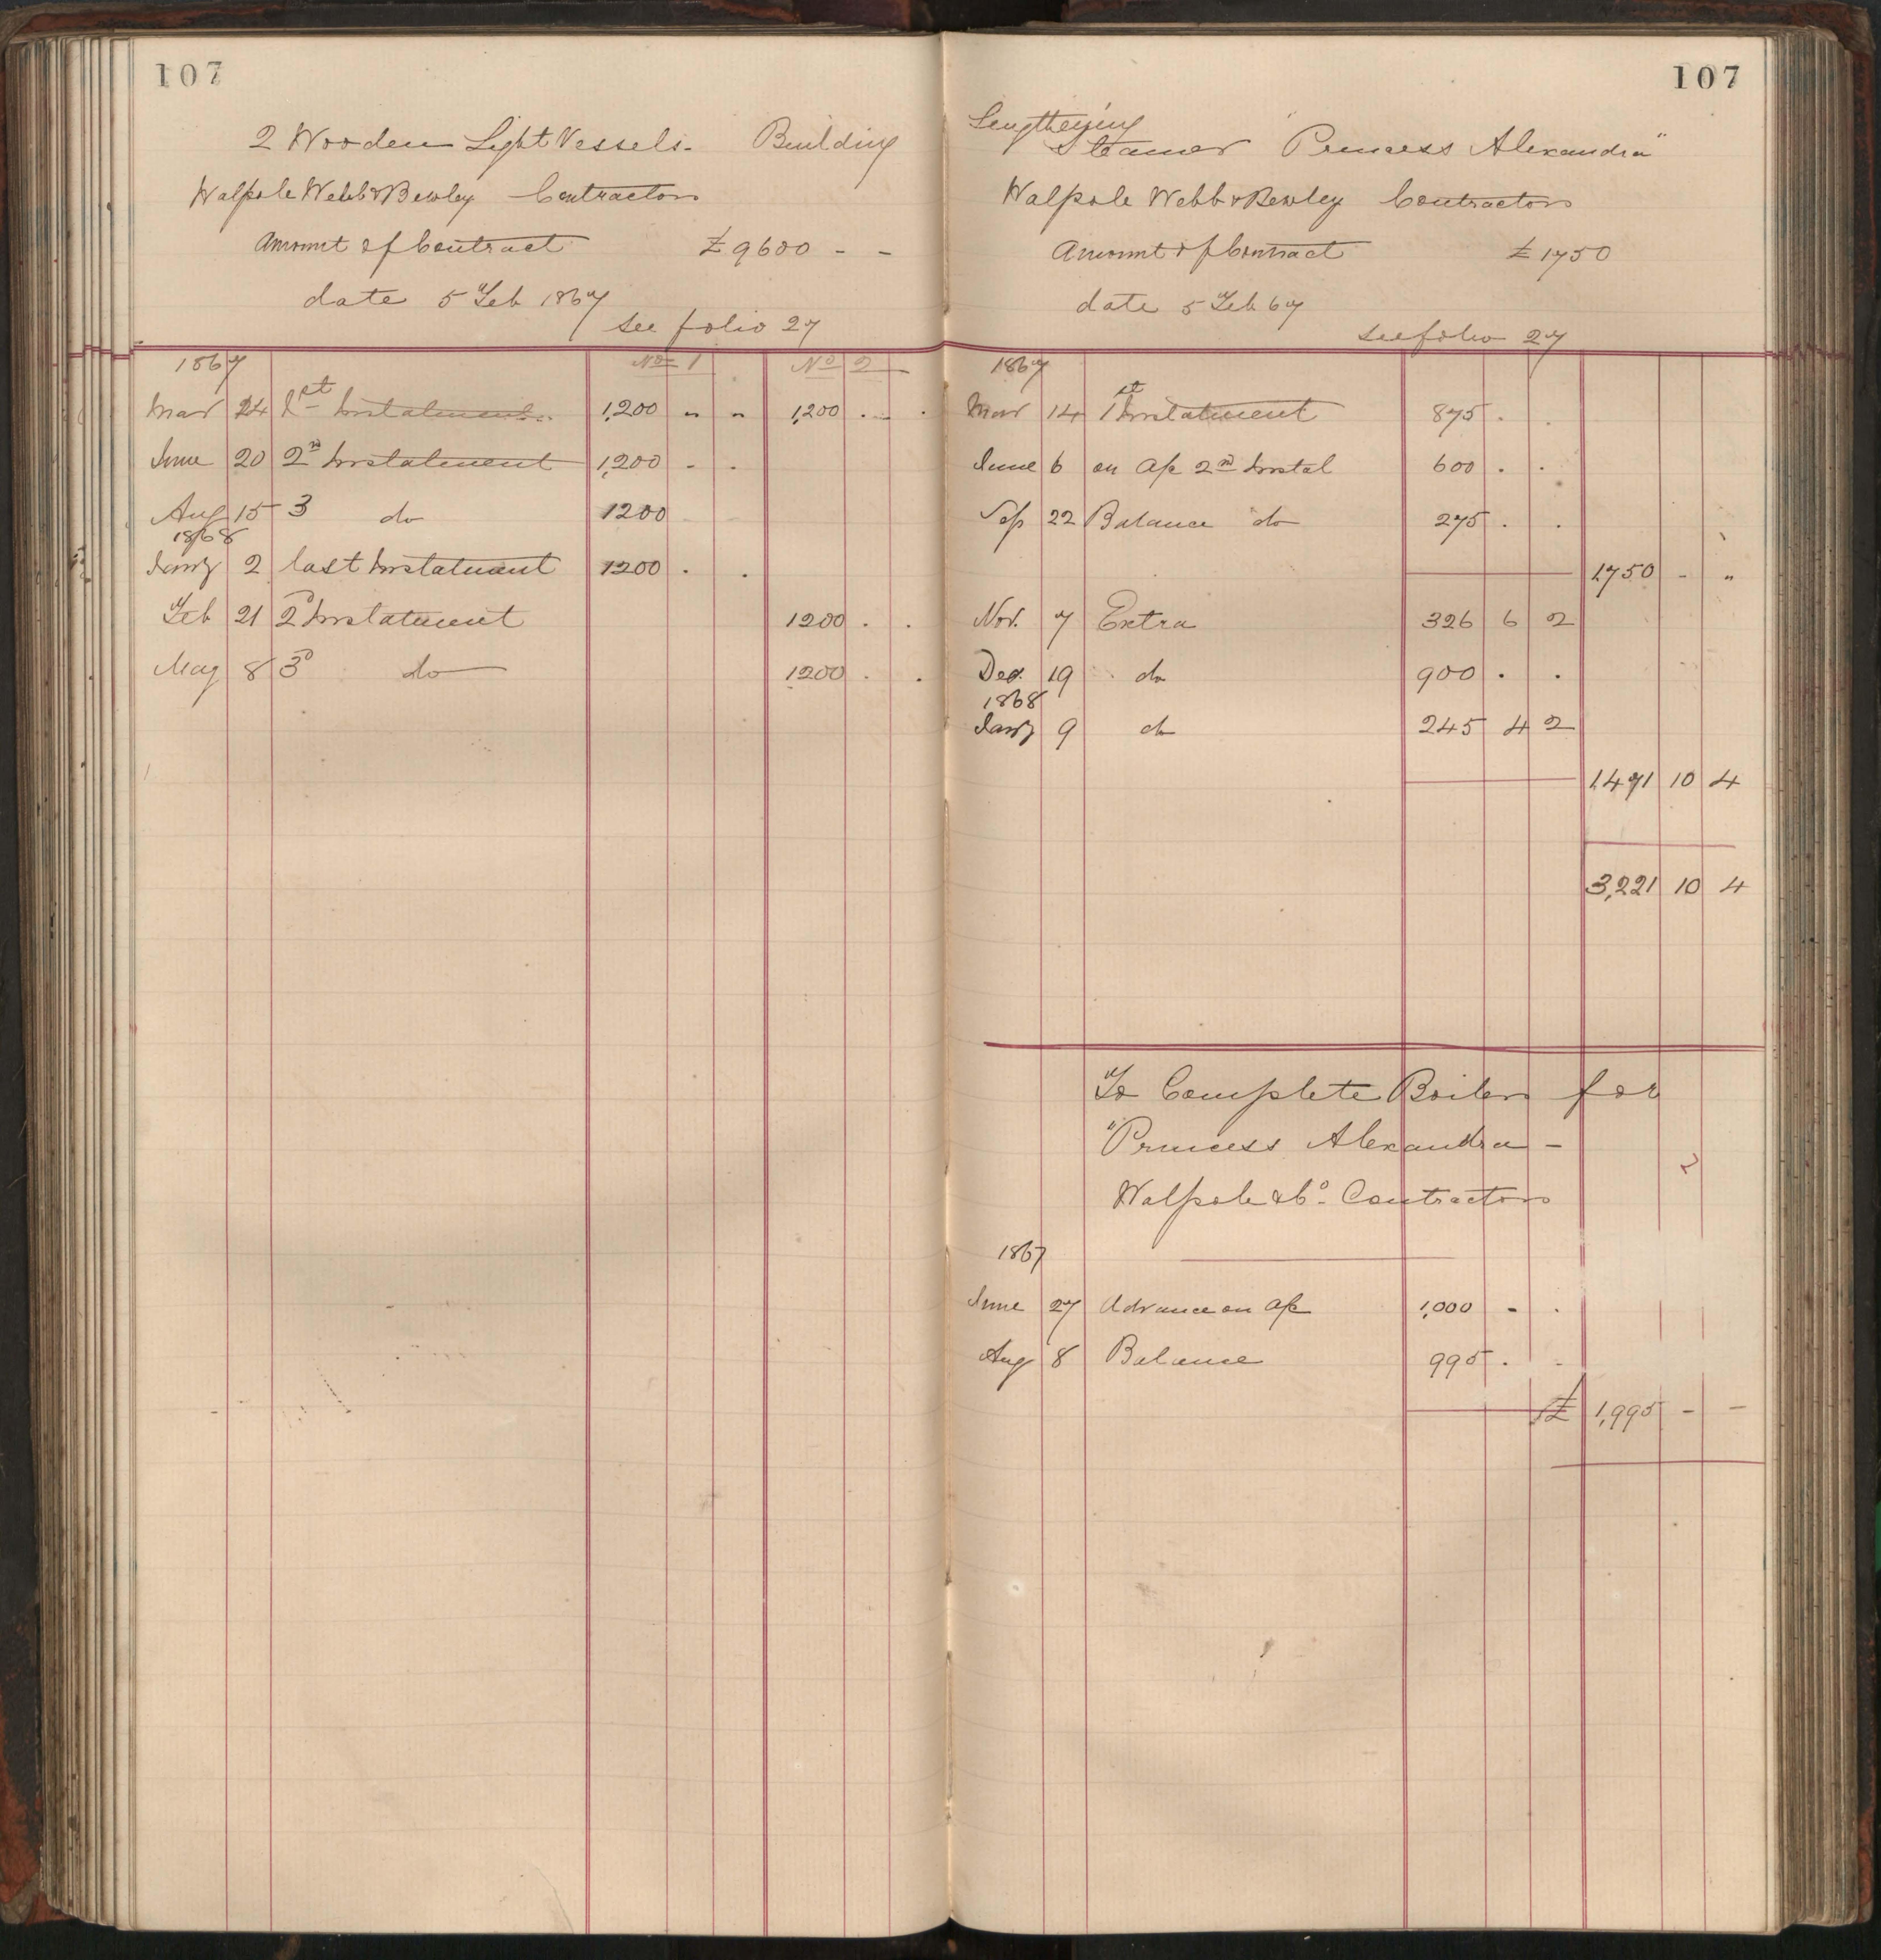 107
2 Wooden Light Vessels. Building
Walpole Webb & Bewley Contractors
Amount of Contract £9600 - -
date 5 Feb 1867
see folio 27
1867 No 1 No 2
Mar 24 1st Instalment 1,200 " " 1,200 . .
June 20 2nd Instalment 1,200 - .
Aug 15 3 do 1200
1868
Jany 2 last Instalment 1200 . .
Feb 21 2d Instalment 1200 . .
May 8 3d do 1200 . .
107
Lengthening
Steamer "Princess Alexandra"
Walpole Webb & Bewley Contractors
Amount of Contract £1750
date 5 Feb 67
see folio 27
1867
Mar 14 1st Instalment 875 . .
June 6 on a/c 2nd Instal 600 . .
Sep 22 Balance do 275 . .
1,750 - "
Nov. 7 Extra 326 6 2
Dec. 19 do 900 . .
1868
Jany 9 do 245 4 2
1,471 10 4
3,221 10 4
To Complete Boilers for
"Princess Alexandra -
Walpole & Co. Contractors
1867
June 27 Advance on a/c 1,000 - .
Aug 8 Balance 995 . -
£ 1,995 - -